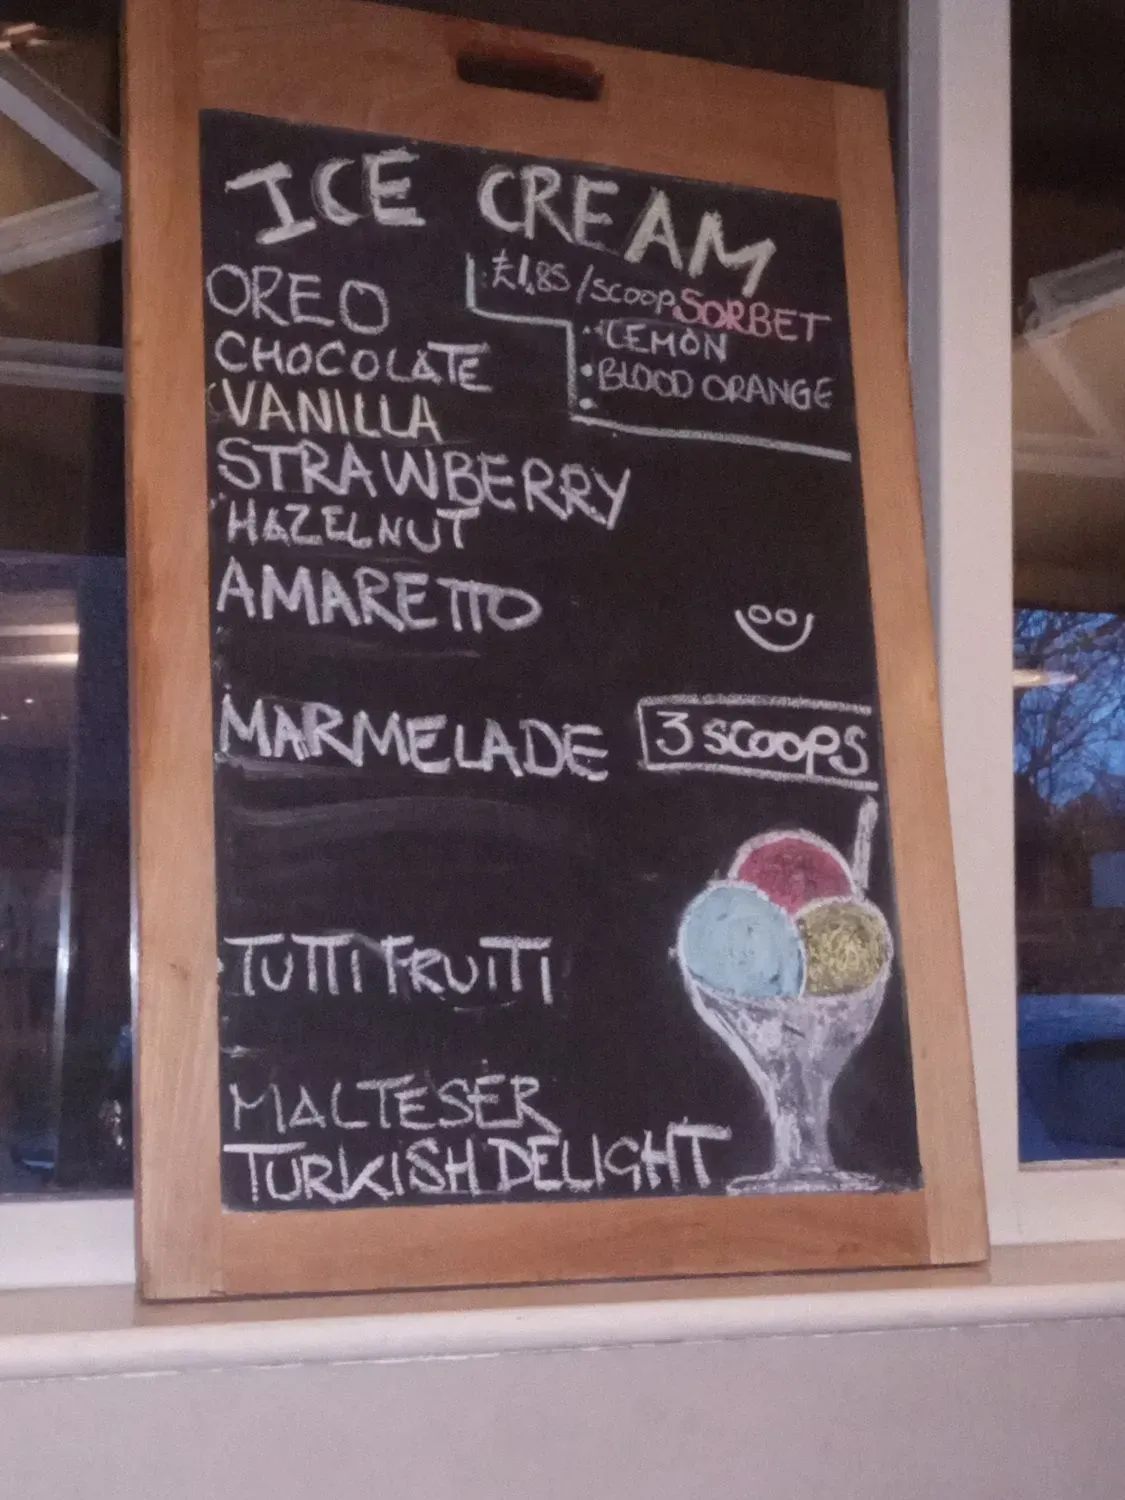 ICE CREAM
£1.85/SCOOP
SORBET
• LEMON
• BLOOD ORANGE
•
OREO
CHOCOLATE
VANILLA
STRAWBERRY
HAZELNUT
AMARETTO
MARMELADE
3 SCOOPS
TUTTI FRUITTI
MALTESER
TURKISH DELIGHT